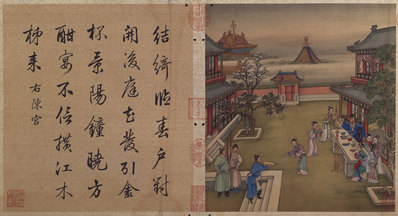 結綺臨春戶對
開後庭花發引金
杯景陽鐘曉方
酣宴不信橫江木
柿來
右陳宮